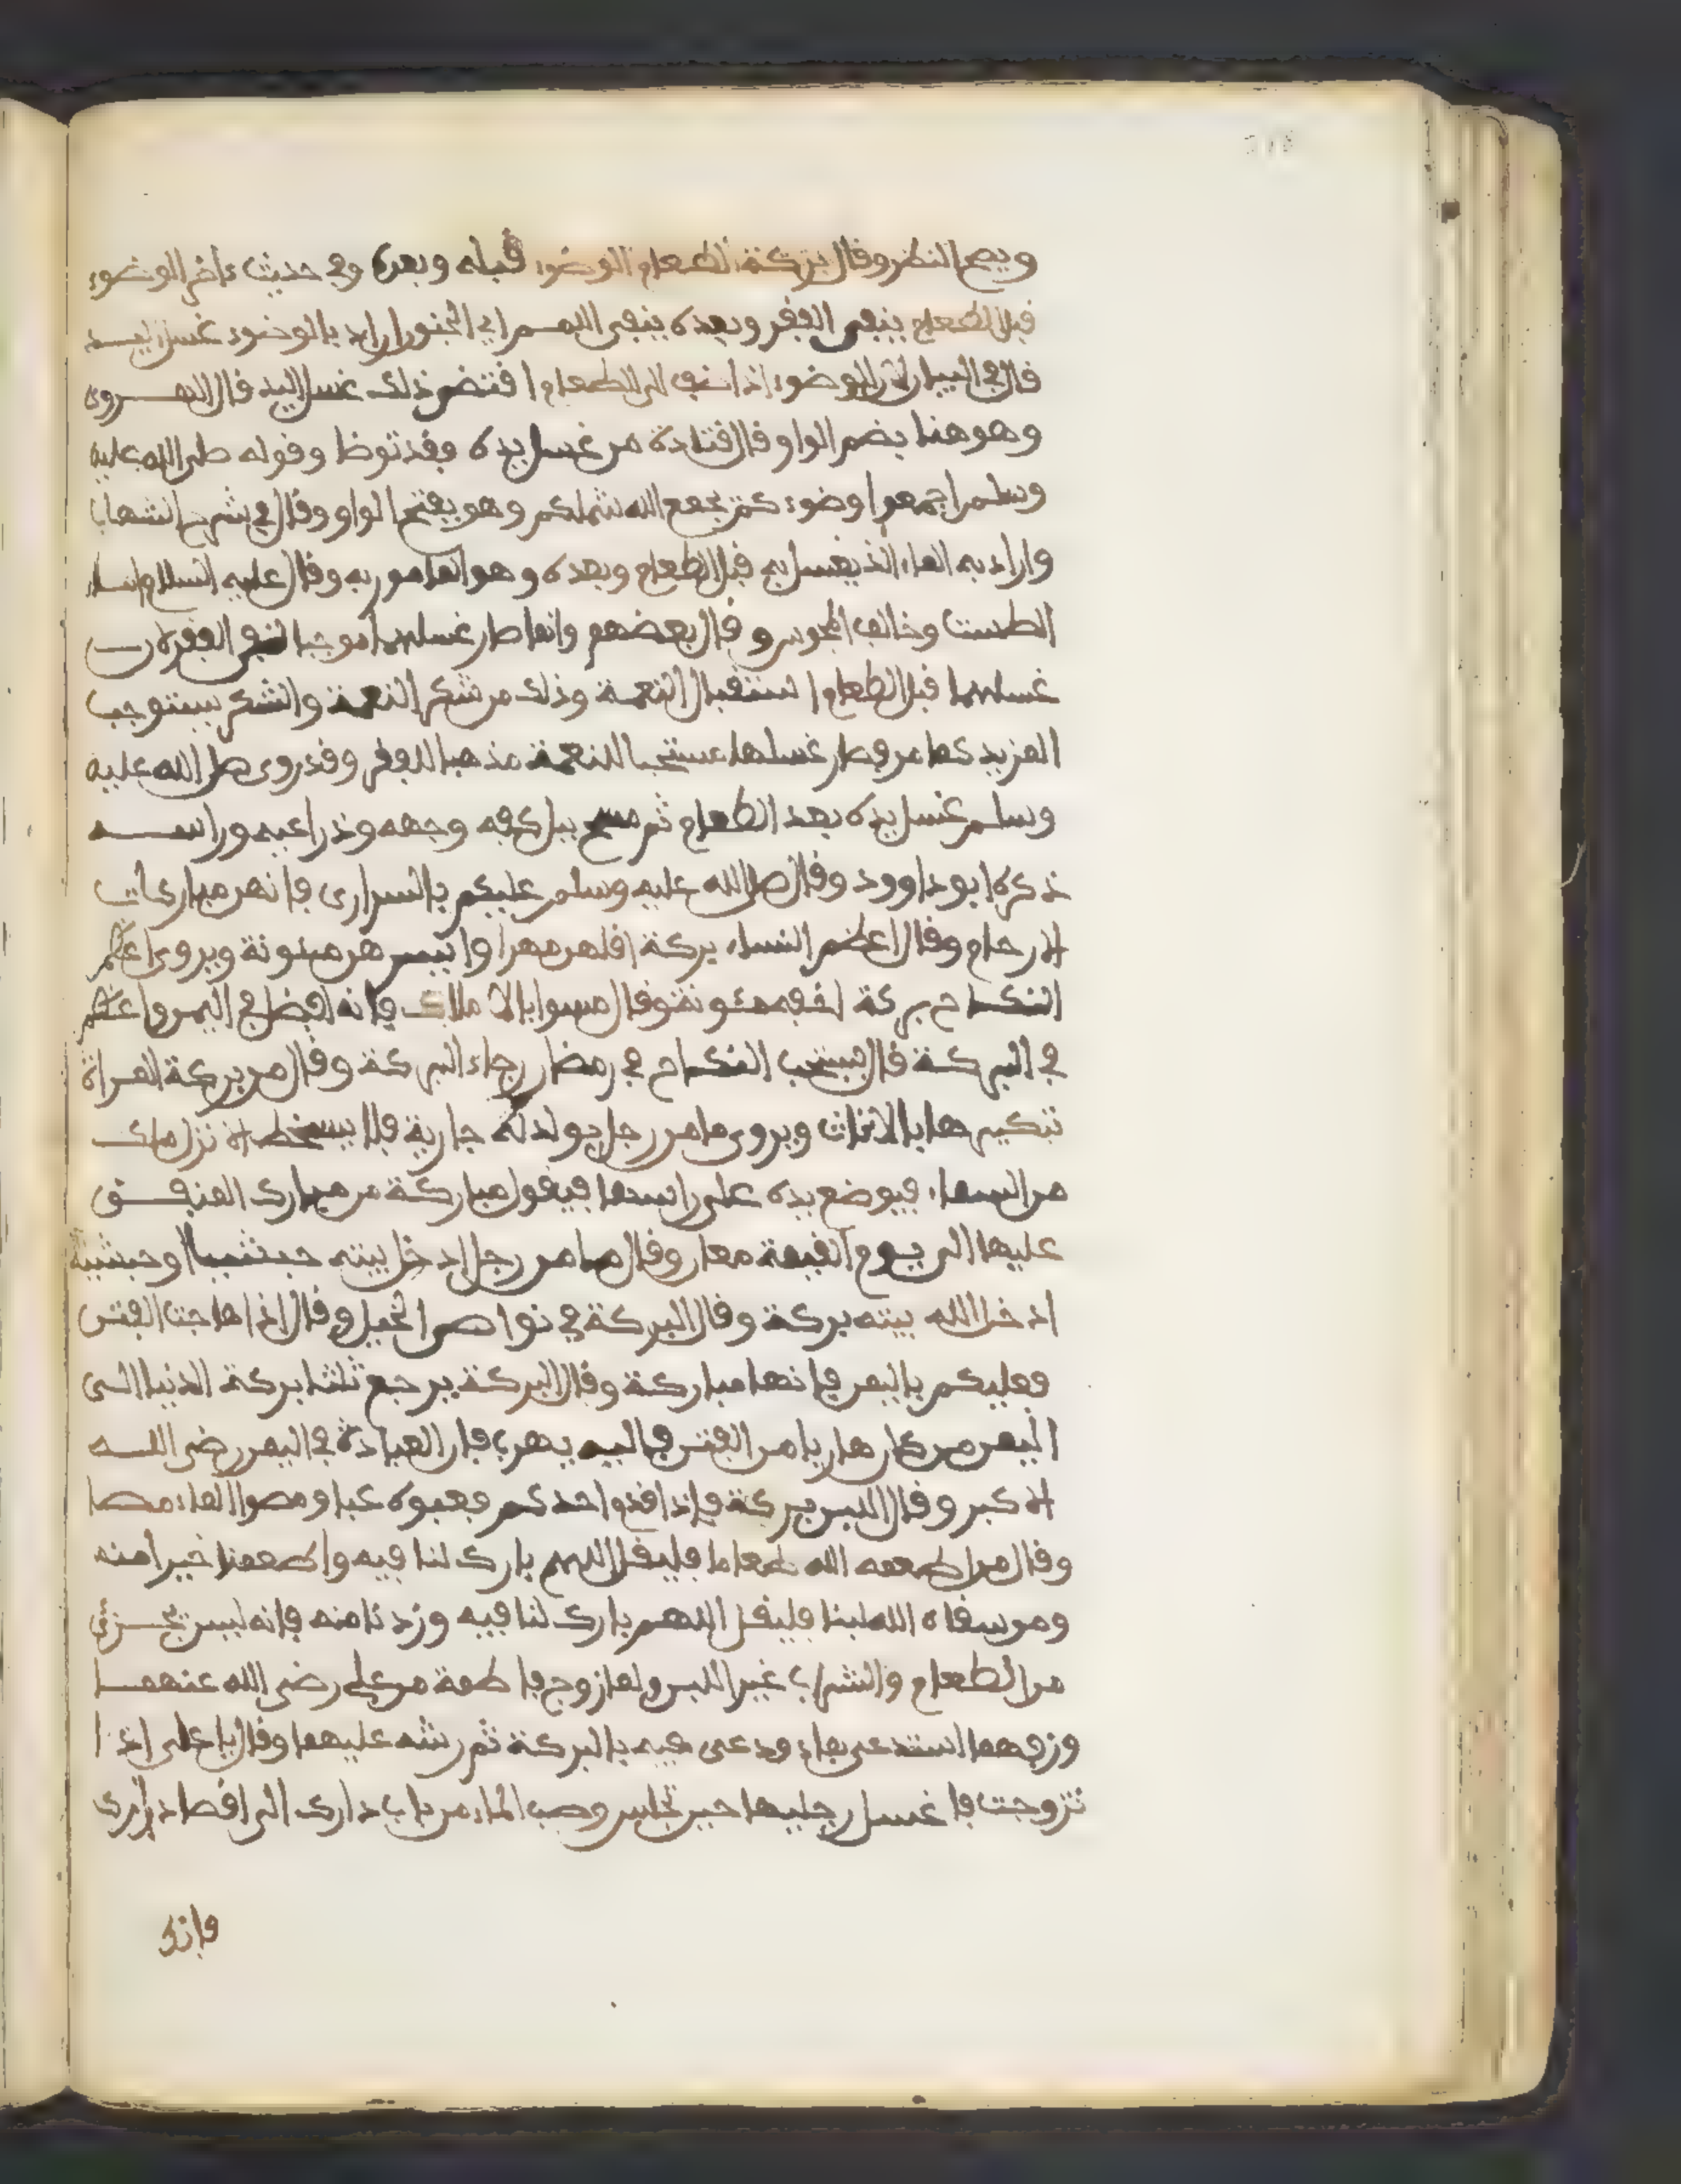 ويصح النظر وقال بركة الطعام الوضوء قبله وبعده وفي حديث ءاخر الوضوء
قبل الطعام ينفي الفقر وبعده ينفي اللمم اي الجنون اراد بالوضوء غسل اليد
قال في البيان لان الوضوء اذا اضيف الى الطعام اقتضى ذلك غسل اليد قال الهروي
وهو هنا بضم الواو قال قتادة من غسل يده فقد توضا وقوله صلى الله عليه
وسلم اجمعوا وضوءكم يجمع الله شملكم وهو بفتح الواو وقال في شرح الشهاب
واراد به الماء الذي يغسل به قبل الطعام وبعده وهو المامور به وقال عليه السلام املوا
الطست وخالف المجوس وقال بعضهم وانما صار غسلهما موجبا لنفي الفقر لان
غسلهما قبل الطعام استقبال النعمة وذلك من شكر النعمة والشكر يستوجب
المزيد كما مر فصار غسلها مستجبا للنعمة مذهبا للفقر وقد روي صلى الله عليه
وسلم غسل يده بعد الطعام ثم مسح ببلل كفه وجهه وذراعيه وراسه
ذكره ابو داوود وقال صلى الله عليه وسلم عليكم بالسراري فانهن مباركات
الارحام وقال اعظم النساء بركة اقلهن مهرا وايسرهن مئونة ويروى اعظم
النكاح بركة اخفه مئونة وقال مسوا بالاملاك فانه افضل في اليمن واعظم
في البركة قال يستحب النكاح في رمضان رجاء البركة وقال من بركة المراة
تبكيرها بالاناث ويروى ما من رجل يولد له جارية فلا يسخط الا نزل ملك
من السماء فيوضع يده على راسها فيقول مباركة من مبارك المنفق
عليها الى يوم القيمة معان وقال ما من رجل ادخل بيته حبشيا او حبشية
ادخل الله بيته بركة وقال البركة في نواصي الخيل وقال اذا هاجت الفتن
فعليكم باليمن فانها مباركة وقال البركة يرجع ثلثا بركة الدنيا الى
اليمن من كان هاربا من الفتن فاليه يهرب فان العبادة في اليمن رضى الله
الاكبر وقال اللبن بركة فاذا احدكم فعبوه عبا ومصوا الماء مصا
وقال من اطعمه الله طعاما فليقل اللهم بارك لنا فيه واطعمنا خيرا منه
ومن سقاه الله لبنا فليقل اللهم بارك لنا فيه وزدنا منه فانه ليس يجزئ
من الطعام والشراب غير اللبن ولما زوج فاطمة من علي رضى الله عنهما
وزفهما استدعى بماء ودعى فيه بالبركة ثم رشه عليهما وقال يا على اذا
تزوجت فاغسل رجليها حين تجلس وصب الماء من باب دارك الى اقصا دارك
فانك